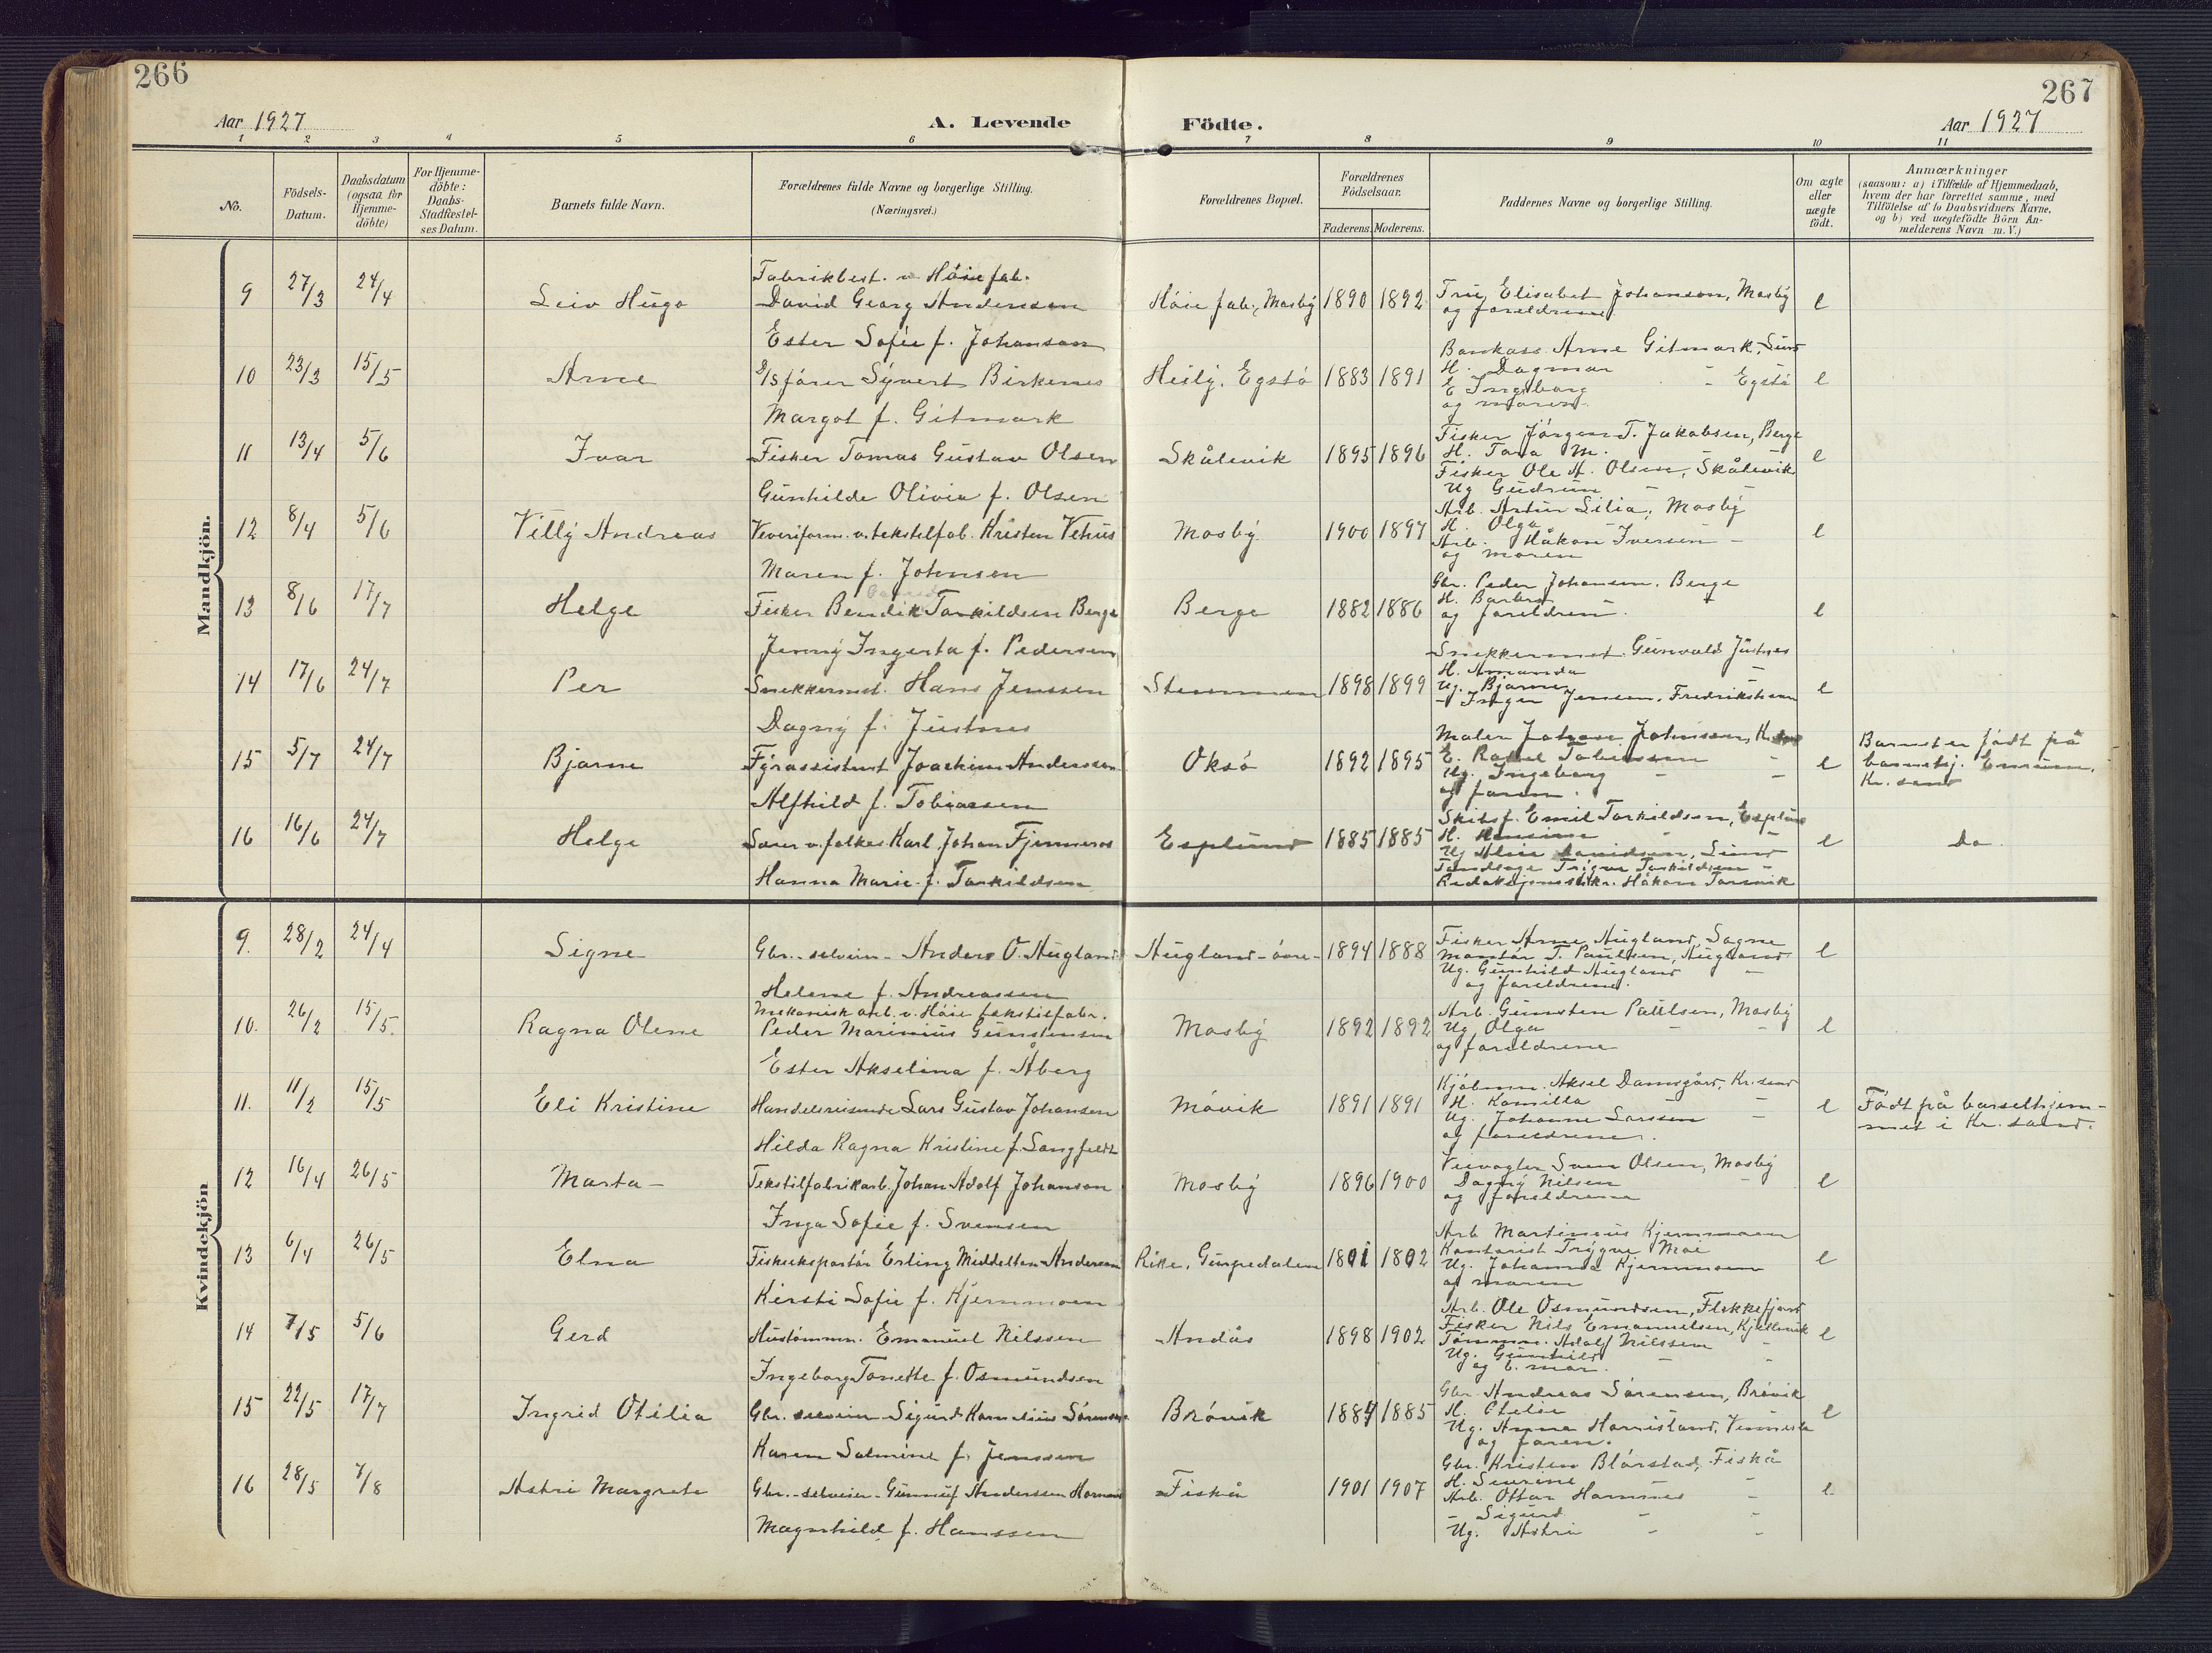 266
267
Aar 1927
A. Levende
Födte.
Aar 1927
1 2 3 4 5 6 7 8 9 10 11
No.
Födsels-
Datum.
Daabsdatum
(ogsaa för
Hjemme-
döbte)
For Hjemme-
döbte:
Daabs-
Stadfæstel-
ses Datum.
Barnets fulde Navn.
Forældrenes fulde Navne og borgerlige Stilling.
(Næringsvei.)
Forældrenes Bopæl.
Forældrenes
Födselsaar.
Faderens. Moderens.
Faddernes Navne og borgerlige Stilling.
Om ægte
eller
uægte
födt.
Anmærkninger
(saasom: a) i Tilfælde af Hjemmedaab,
hvem der har forrettet samme, med
Tilföielse af to Daabsvidners Navne,
og b) ved uægtefödte Börn An-
melderens Navn m. V.)
Mandkjön.
9 27/3 24/4 Leiv Hugo
Fabrikbest. v. Höie fab.
David Georg Andersson
Ester Sofie f. Johanson
Höie fab., Mosby 1890 1892
Fru Elisabet Johanson, Mosby
og foreldrene
e
10 23/3 15/5 Arne
D/S förer Syvert Birkenes
Margot f. Gitmark
Hellg. Egstö 1883 1891
Bankass. Arne Gitmark, Lund
H. Dagmar - Egstö
E Ingeborg
og moren
e
11 13/4 5/6 Ivar
Fisker Tomas Gustav Olsen
Gunhilde Olivia f. Olsen
Skålevik 1895 1896
Fisker Jörgen T. Jakobsen, Berge
H. Tora M. -
Fisker Ole A. Olsen, Skålevik
Ug Gudrun - -
e
12 8/4 5/6 Villy Andreas
Veveriform. v. tekstilfab. Kristen Vehus
Maren f. Johnsen
Mosby 1900 1897
Arb. Artur Lilia, Mosby
H. Olga
Arb. Håkon Iversen -
og moren
e
13 8/6 17/7 Helge
Fisker Bendik Torkildsen Berge
Jenny Ingerta f. Pedersen
Berge 1882 1886
Gbr. Peder Johansen, Berge
H. Barbro -
og foreldrene.
e
14 17/6 24/7 Per
Snekkermst. Hans Jenssen
Dagny f. Justnes
Stemmen 1898 1899
Snekkermst. Gunvald Justnes
H. Amanda -
Ug. Bjarne
- Inger Jensen, Fredrikshavn
e
15 5/7 24/7 Bjarne
Fyrassistent Joachim Anderssen
Alfhild f. Tobiassen
Oksö 1892 1895
Maler Johan Johnsen,
E. Rakel Tobiassen -
Ug. Ingeborg - -
og faren.
e
Barnet er födt på
Kr. sand
16 16/6 24/7 Helge
Karl Johan Fjermeros
Hanna Marie f. Torkildsen
Esplund 1885 1885
Skibsf. Emil Torkildsen, Esplund
H.
Ug Davidsen, Lund
Tandlæge Trygve Torkildsen -
Redaksjonssekr. Håkon Torsvik
e
Do.
Kvindekjön
9. 28/2 24/4 Signe
Gbr. - selveier - Anders O. Augland
Helene f. Andreassen
Augland - övre - 1894 1888
Fisker Arne Augland, Søgne
Montör T. Paulsen, Augland
Ug. Gunhild Augland -
og foreldrene.
e
10. 26/2 15/5. Ragna Olene
Mekanisk arb. v. Höie tekstilfabr.
Peder Marinius Gunstensen
Ester Akselina f. Åberg
Mosby 1892 1892
Arb. Gunsten Paulsen, Mosby
Ug Olga - -
og foreldrene
e
11. 11/2 15/5 Eli Kristine
Handelsreisende Lars Gustav Johansen
Hilda Ragna Kristine f. Langfeldt
Mövik 1891 1891
Kjöbmm. Aksel Damsgård, Kr. sand
H. Kamilla -
Ug. Johanne Larssen -
og foreldrene.
e
Födt på barselhjem-
met i Kr. sand.
12 16/4 26/5 Marta -
Tekstilfabrikarb. Johan Adolf Johanson
Inga Sofie f. Svensen
Mosby 1896 1900
Veivogter Sven Olsen, Mosby
Dagny Nilsen -
og foreldrene
e
13 6/4 26/5 Elna
Fiskeeksportör Erling Middelton Andersen
Kirsti Sofie f. Kjernmoen
Rike, Gunpedalen 1901 1902
Arb Martinius Kjernmoen
Kontorist Trygve Moe
Ug. Johanna Kjernmoen
og moren
e
14 7/5 5/6 Gerd
Hustömmm. Emanuel Nilssen
Ingeborg Tonette f. Osmundsen
Andås 1898 1902
Arb. Ole Osmundsen, Flekkefjord
Fisker Nils Emanuelsen, Kjellevik
Tömmm. Adolf Nilssen -
Ug. Gunhild - -
og b. mor.
e
15 22/5 17/7 Ingrid Otilia
Gbr. selveier Sigurd Kornelius Sörensen
Karen Salmine f. Jenssen
Brövik 1884 1885
Gbr. Andreas Sörensen, Brövik
H. Otelie
Ug. Anna Harrisland, Vennesla
og faren.
e
16 28/5 7/8 Astri Margrete
Gbr. - selveier - Gunnuf Anderssen Homme
Magnhild f. Hanssen
Fiskå 1901 1907
Gbr. Kristen Blörstad, Fiskå
H. Severine -
Arb. Ottar Hommes -
- Sigurd - -
Ug. Astri - -
e